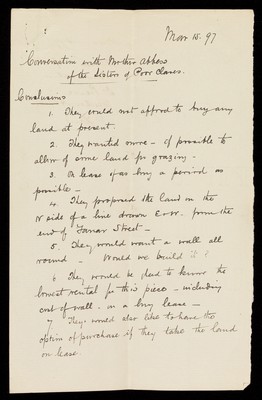 Mar 15. 97
Conversation with Mother Abbess
of the Sisters of Poor Clares.
Conclusions
1. They could not afford to buy any
land at present.
2. They wanted more - if possible to
allow of some land for grazing.
3. A lease of as long a period as
possible -
4. They proposed the land on the
N side of a line drawn E & W. from the
end of Street -
5. They would want a wall all
round - Would we build it?
6 They would be glad to know the
lowest rental for this piece - including
cost of wall. on a long lease -
7 They would also like to have the
option of purchase if they take the land
on lease.